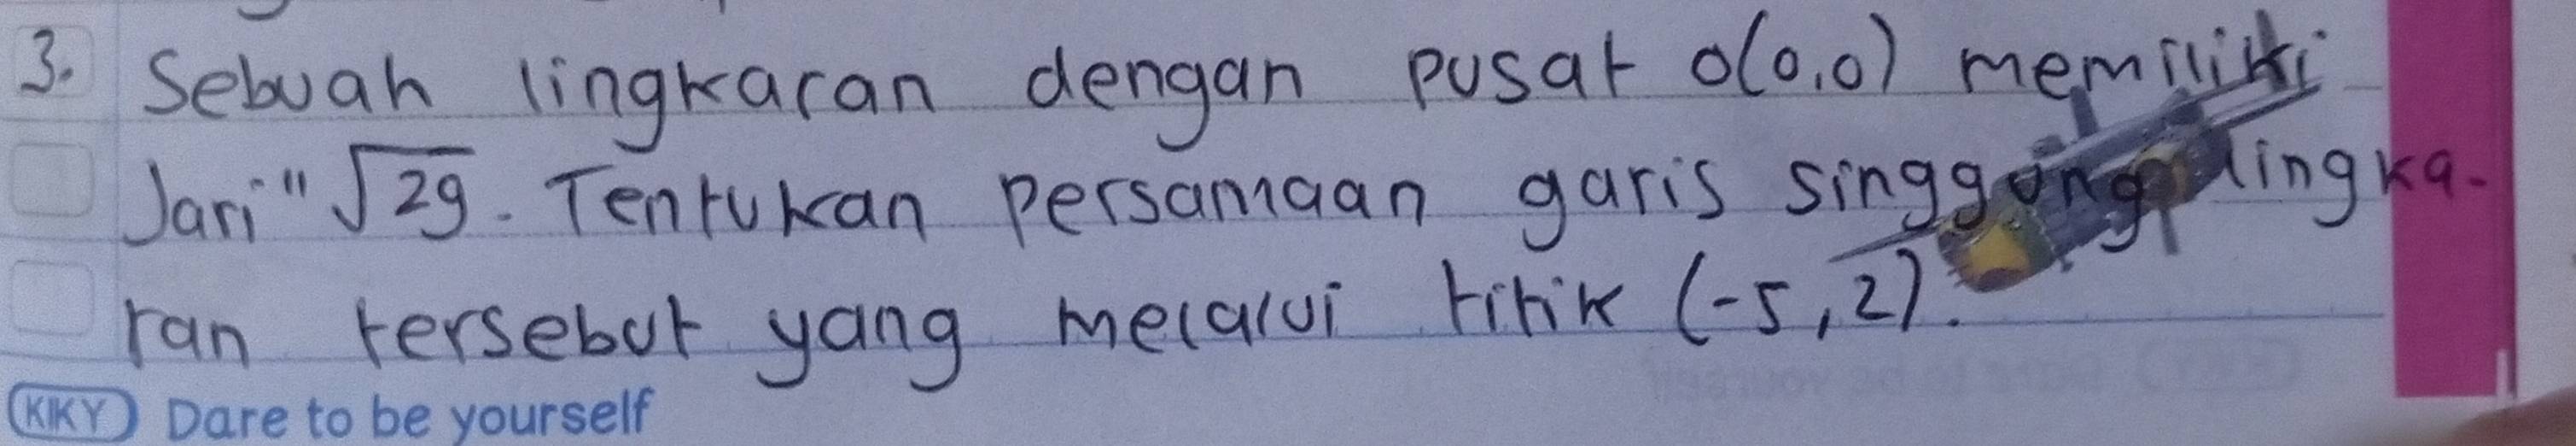 3. Sebuah lingkaran dengan pusat O(0,0) memiliki
Jari" √29. Tentukan persamaan garis singgung lingka-
ran tersebut yang melalui titik (-5,2).
KIKY Dare to be yourself